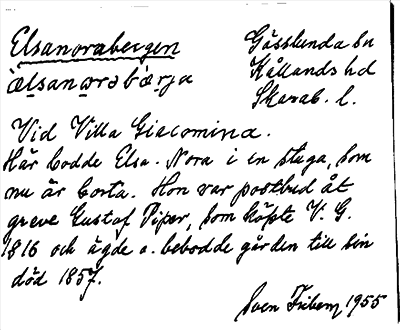 Elsanorabergen
Gösslunda sn
Kållands hd
Skarab. l.
àlsanωrəbàrja
Vid Villa Giacomina.
Här bodde Elsa-Nora i en stuga, som
nu är borta. Hon var postbud åt
greve Gustaf Piper, som köpte V. G.
1816 och ägde o. bebodde gården till sin
död 1857.
Sven Friberg 1955